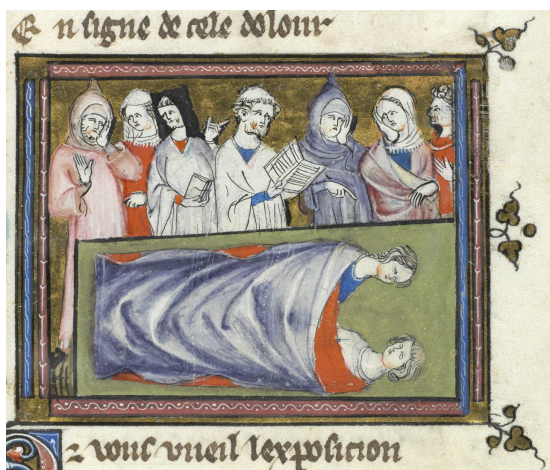 En signe de cele dolour
Or vous vueil lexposicion